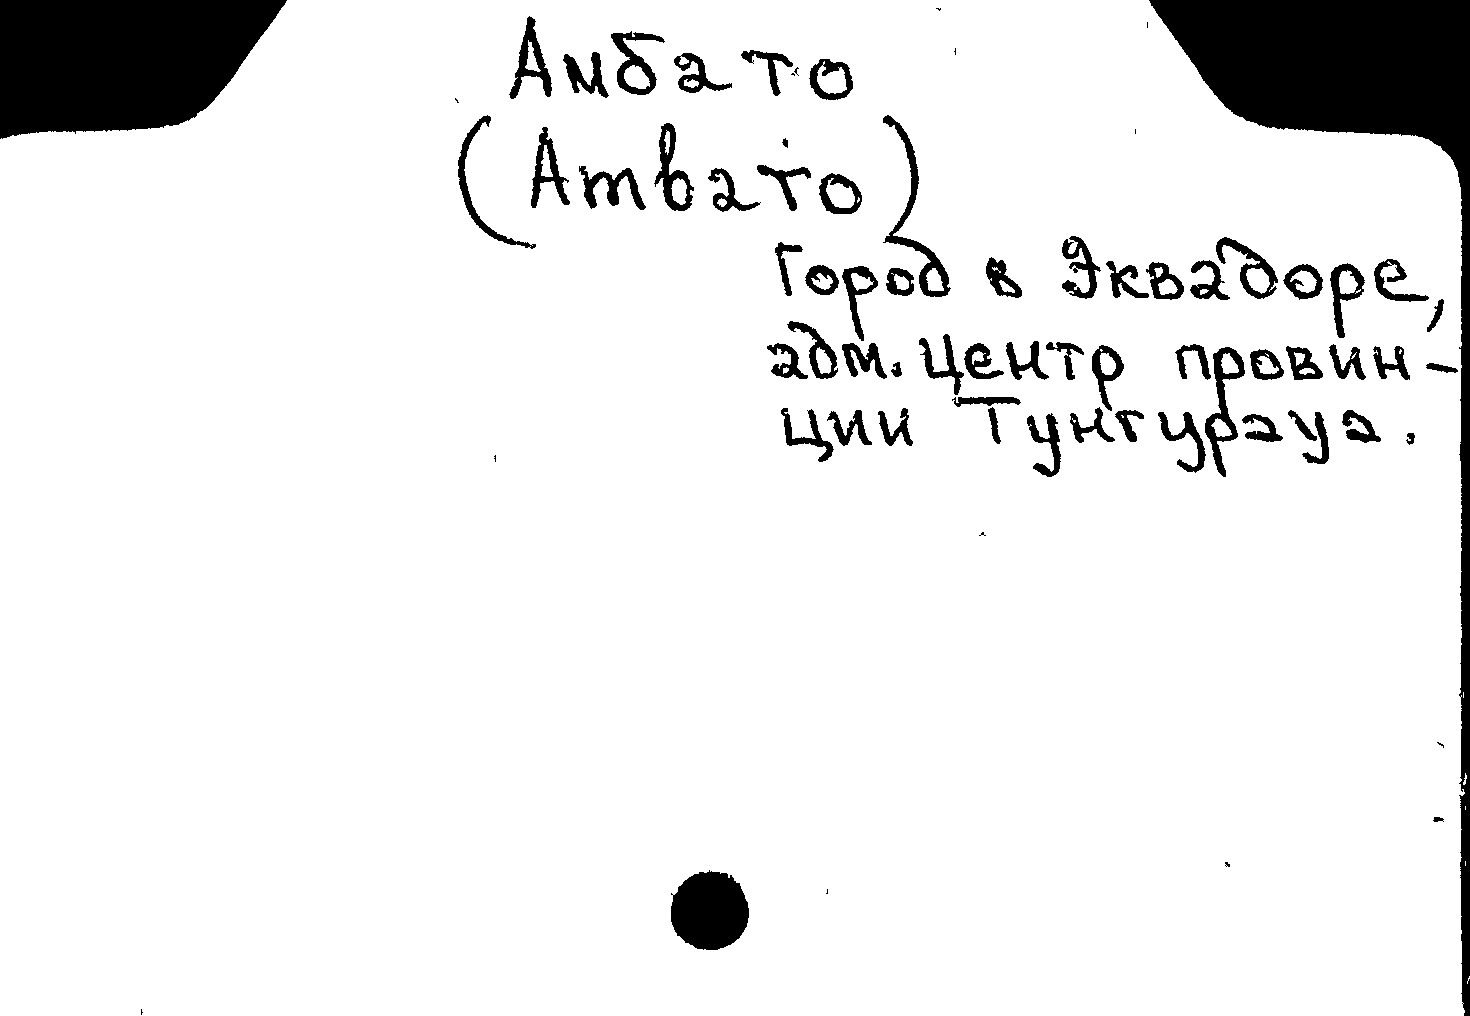 Амбато
(Ambato)
Город в Эквадоре,
адм. центр провин-
ции Тунгурауа.